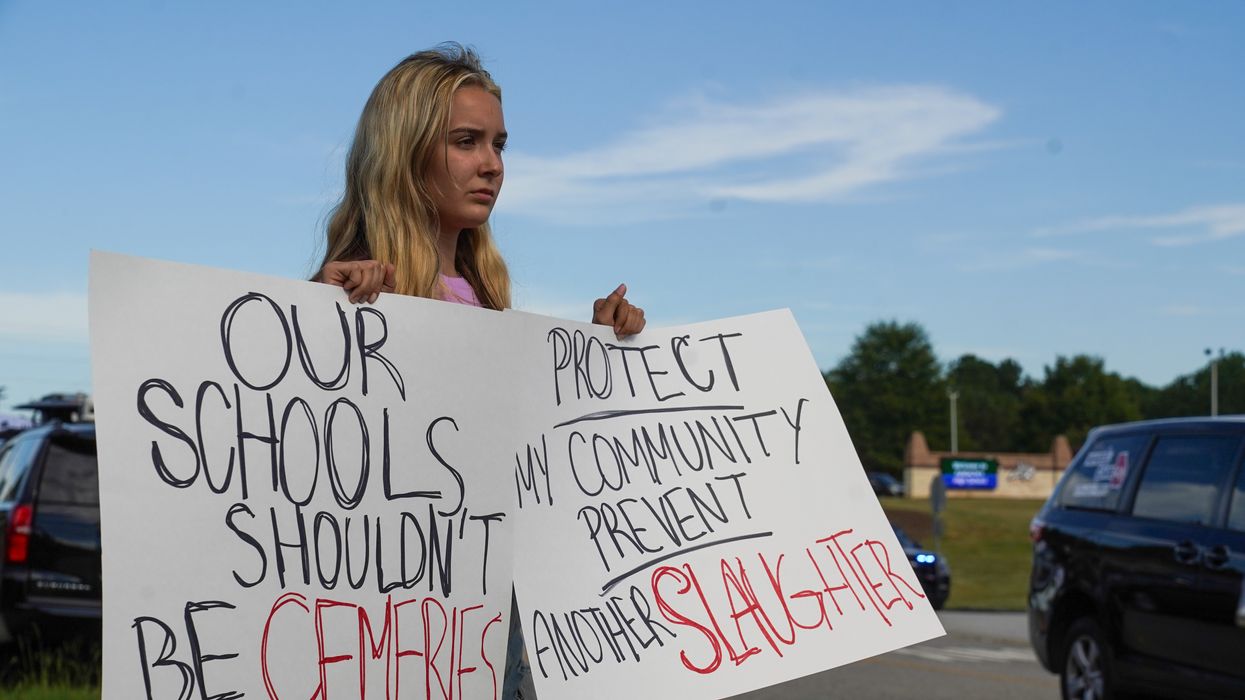 OUR
SCHOOLS
SHOULDN'T
BE CEMERIES
PROTECT
MY COMMUNITY
PREVENT
ANOTHER SLAUGHTER